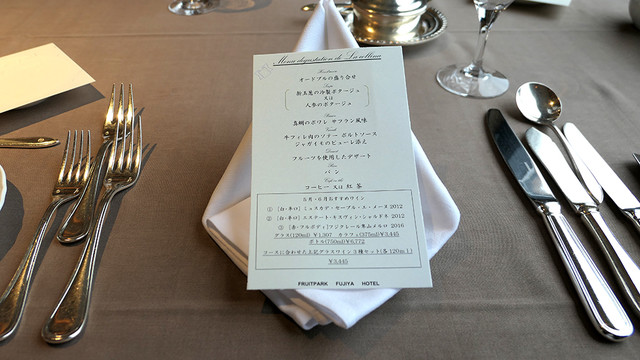 Menu dégustation de La collina
オードブルの盛り合せ
新玉葱の冷製ポタージュ
又は
人参のポタージュ
真鯛のポワレ サフラン風味
牛フィレ肉のソテー ポルトソース
ジャガイモのピューレ添え
Dessert
フルーツを使用したデザート
パン
コーヒー 又は 紅茶
5月・6月おすすめワイン
① [白・辛口] ミュスカデ・セーブル・エ・メーヌ 2012
② [白・辛口] エスタート・キスヴィン・シャルドネ 2012
③ [赤・フルボディ] フジクレール本山メルロ 2010
グラス(120ml) ¥1,307 カラフェ(375ml)¥3,445
ボトル(750ml)¥6,772
コースに合わせた上記グラスワイン3種セット(各120ml)
¥3,445
FRUITPARK FUJIYA HOTEL